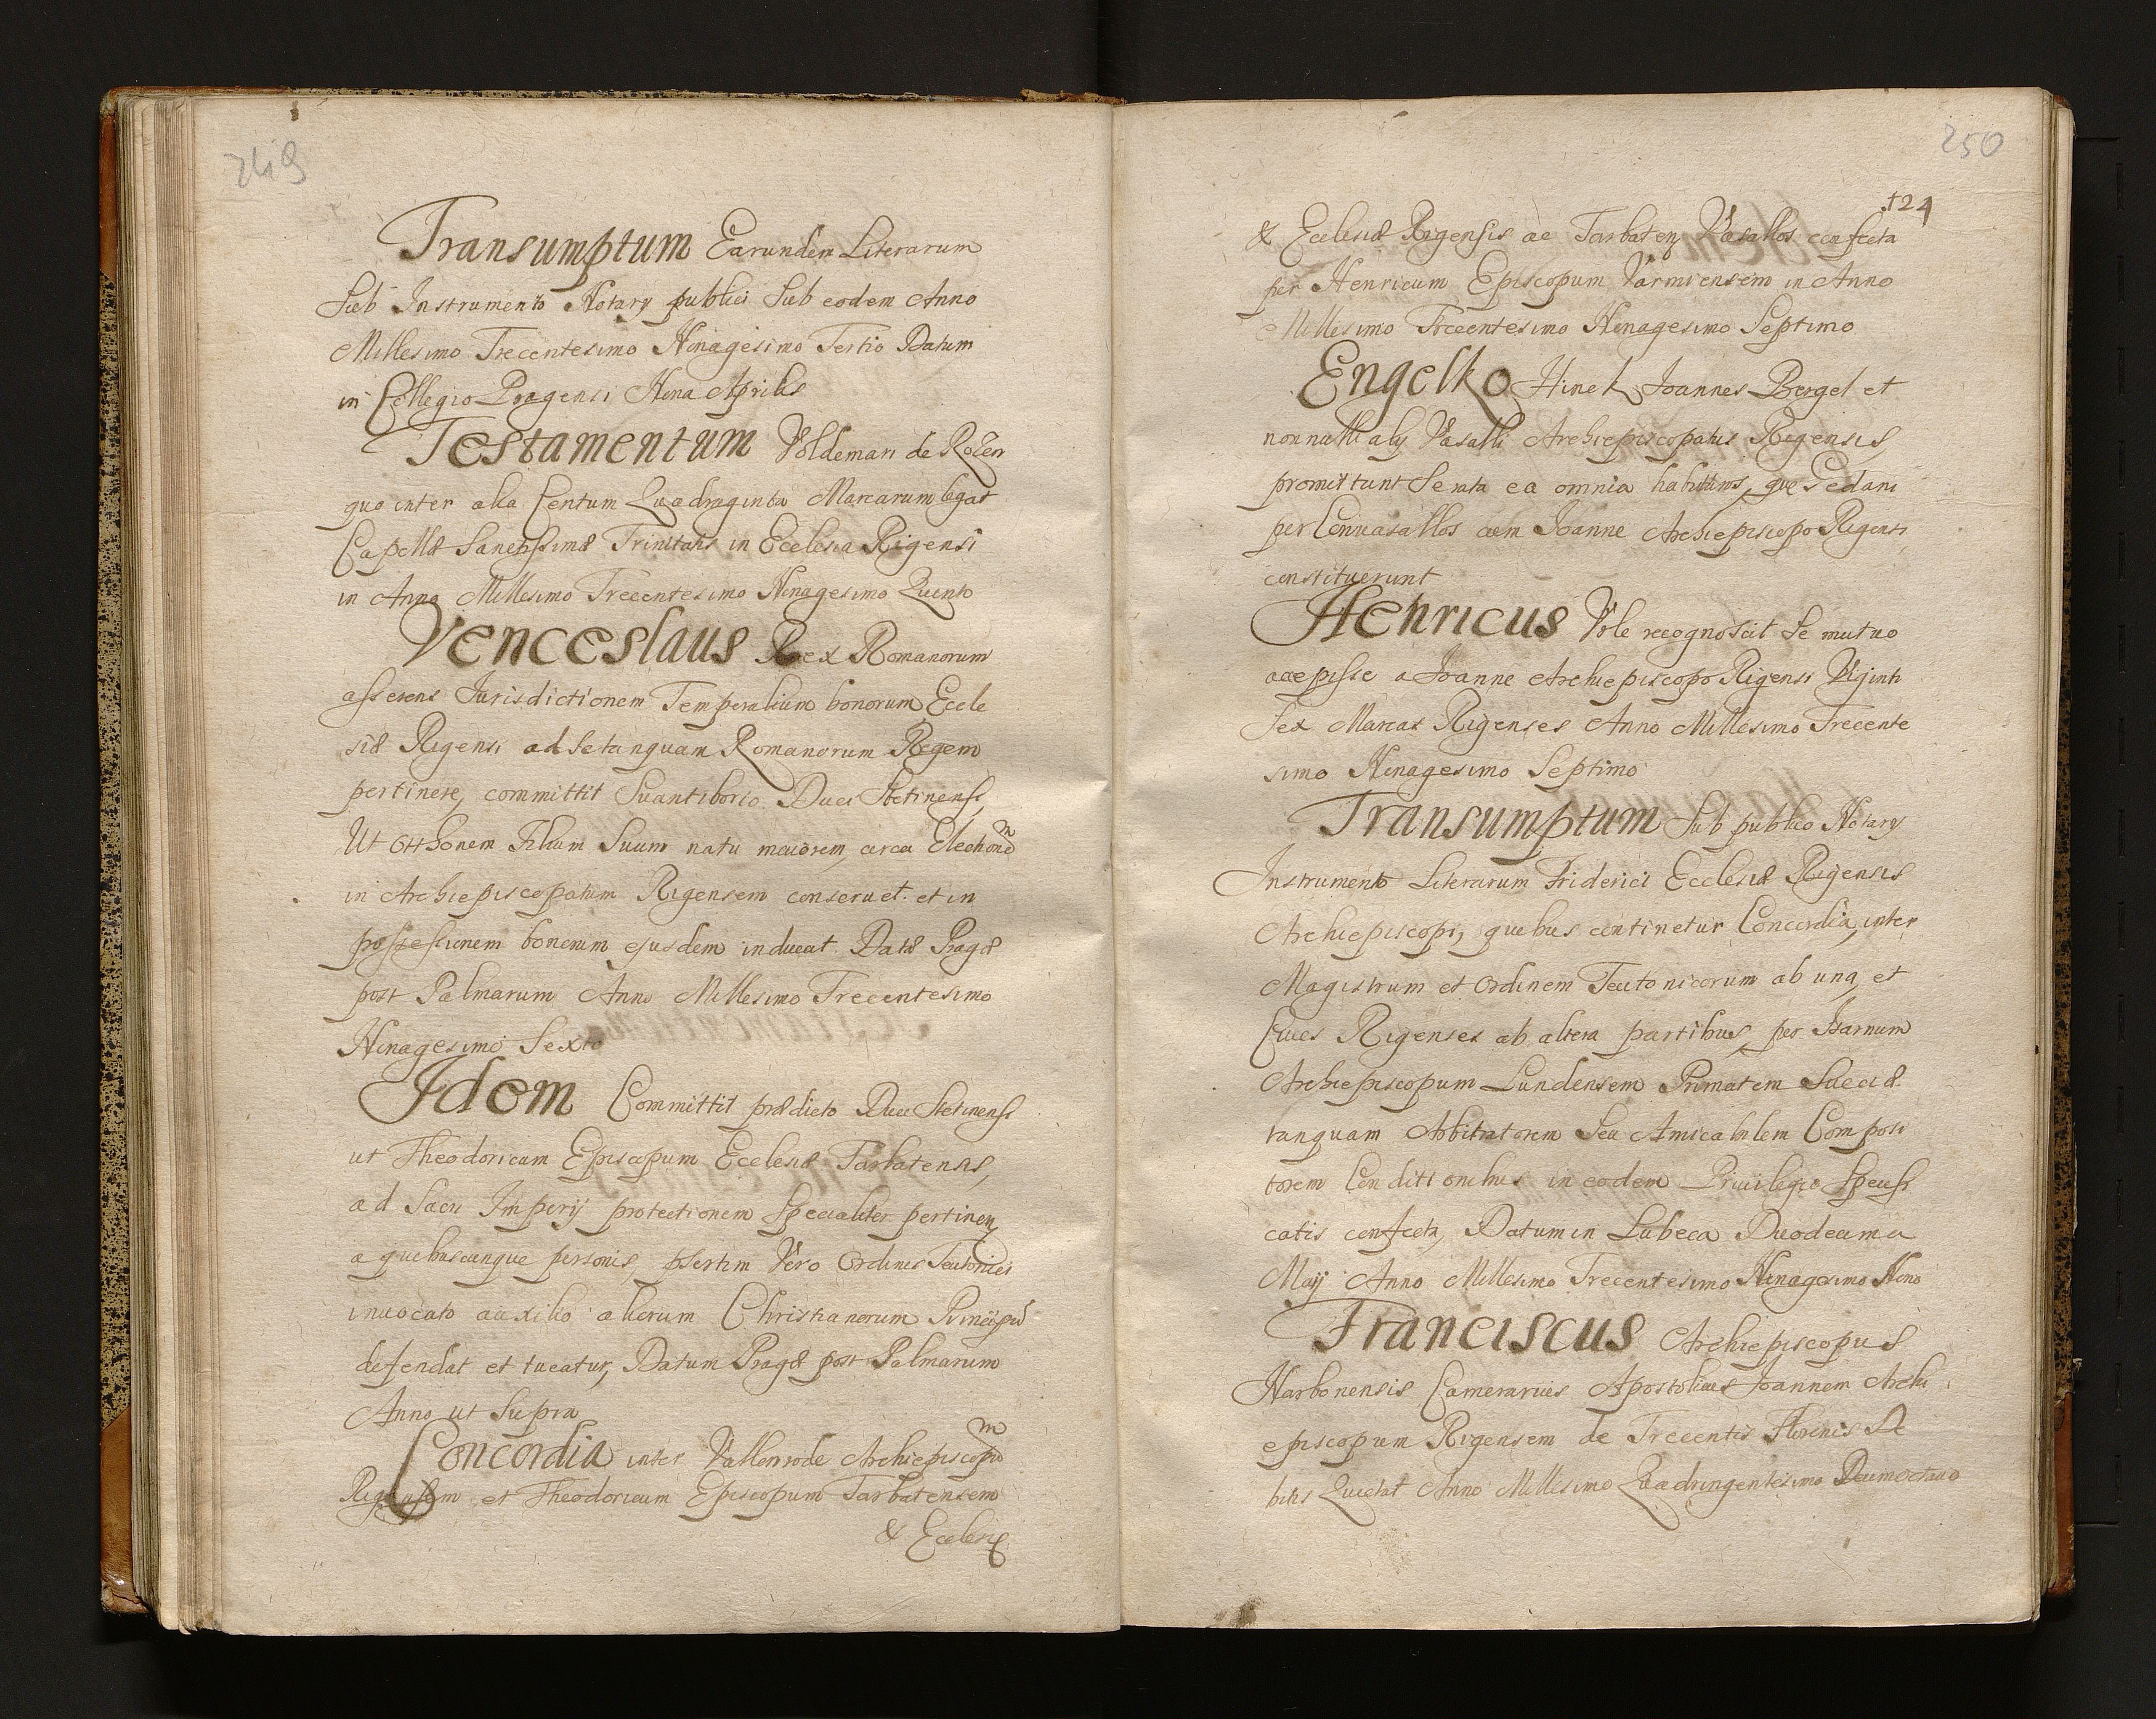 249
Transumptum Earundem Literarum
Sub Instrumento Notary publici Sub eodem Anno
Millesimo Trecentesimo Nonagesimo Tertio Datum
in Collegio Pragensi Nona Aprilis
Testamentum Voldemari de Rozen
quo inter alia Centum Quadraginta Marcarum legat
Capellæ Sanctissimæ Trinitatis in Ecclesia Rigensi
in Anno Millesimo Trecentesimo Nonagesimo Quinto
Venceslaus Rex Romanorum
asserens Jurisdictionem Temporalium bonorum Eccle
siæ Rigensi ad se tanquam Romanorum Regem
pertinere, committit Suantiborio Duci Stetinensi,
Ut Otthonem Filium Suum natu maiorem, circa Electione
in Archiepiscopatum Rigensem conseruet et in
possessionem bonorum ejusdem inducat Datæ Pragæ
post Palmarum Anno Millesimo Trecentesimo
Nonagesimo Sexto
Idem Committit prædicto Duci Stetinensi
ut Theodoricum Episcopum Ecclesiæ Tarbatensis,
ad Sacri Imperij protectionem Specialiter pertinen
a quibuscunque personis, psertim Vero Ordinis Teutonici
inuocato auxilio aliorum Christianorum Principu
defendat et tueatur, Datum Pragæ post Palmarum
Anno ut Supra
Concordia inter Vallenrode Archiepiscopu
Rigensem et Theodoricum Episcopum Tarbatensem
& Ecclesię
250
124
& Ecclesiæ Rigensis ac Tarbaten Vasallos confecta
per Henricum Episcopum Varmiensem in Anno
Millesimo Trecentesimo Nonagesimo Septimo
Engelko Joannes Bergel et
nonnulli alij Vasalli Archiepiscopatus Rigensis,
promittunt Se rata ea omnia habituros, quę Sedani
per Conuasallos cum Joanne Archiepiscopo Rigensi
constituerunt
Henricus Vole recognoscit Se mutuo
accepisse a Joanne Archiepiscopo Rigensi Viginti
Sex Marcas Rigenses Anno Millesimo Trecente
simo Nonagesimo Septimo
Transumptum Sub publico Notary
Instrumento Literarum Friderici Ecclesiæ Rigensis
Archiepiscopi, quibus continetur Concordia, inter
Magistrum et Ordinem Teutonicorum ab una, et
Ciues Rigenses ab altera partibus, per Isarnum
Archiepiscopum Lundensem Primatem Sueciæ
tanquam Arbitratorem Seu Amicabilem Composi
torem Conditionibus in eodem Priuilegio Specifi
catis confecta, Datum in Lubeca Duodecima
Maij Anno Millesimo Trecentesimo Nonagesimo Nono
Franciscus Archiepiscopus
Narbonensis Camerarius Apostolicus Joannem Archi
episcopum Rigensem de Trecentis Florenis De
bitis Quietat Anno Millesimo Quadringentesimo Decimo octauo